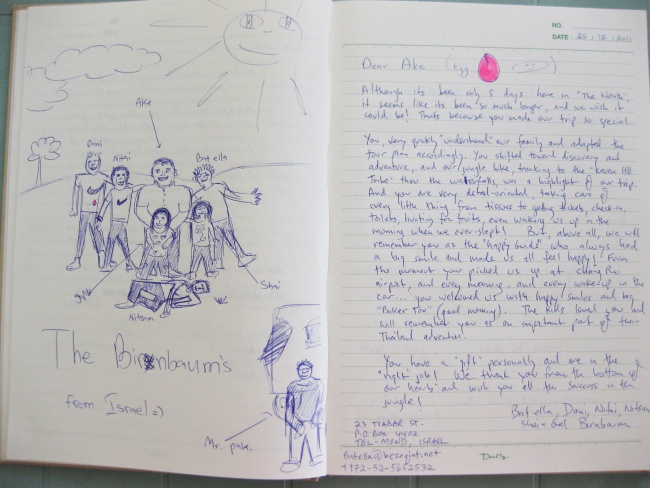 Ake
Doni
Nitai
Bat-ella
Shai
Nitsan
The Birnbaum's
from Israel =)
Mr.
NO.
DATE: 26, 12, 2011
Dear Ake (Egg )
Although its been only 5 days here in "The North",
it seems like its been so much longer, and we wish it
could be! Thats because you made our trip so special...
You, very quickly "understood" our family and adapted the
tour plan accordingly. You shifted toward discovery and
adventure, and our jungle hike, trekking to the "Karen Hill
Tribe" thru the waterfalls, was a highlight of our trip.
And you are very detail-oriented, taking care of
every little thing from tissues to getting tickets, check-in,
toilets, hunting for fruits, even waking us up in the
morning when we over-slept! But, above all, we will
remember you as the "happy guide" who always had
a big smile and made us all feel happy! From
the moment you picked us up at Chang Rai
airport, and every morning, and every wake-up in the
car... you welcomed us with happy smiles and big
"Boker Tov" (good morning). The kids loved you and
will remember you as an important part of their
Thailand adventure.
You have a "gift" personally and are in the
"right job"! We thank you from the bottom of
our hearts and wish you all the success in the
jungle!
Bat-ella, Doni, Nitai, Nitsan
Shai + Gal Birnbaum
23 TSABAR ST.
P.O. BOX
TEL-MOND, ISRAEL
Batella@bezeqint.net
+972-52-5652532